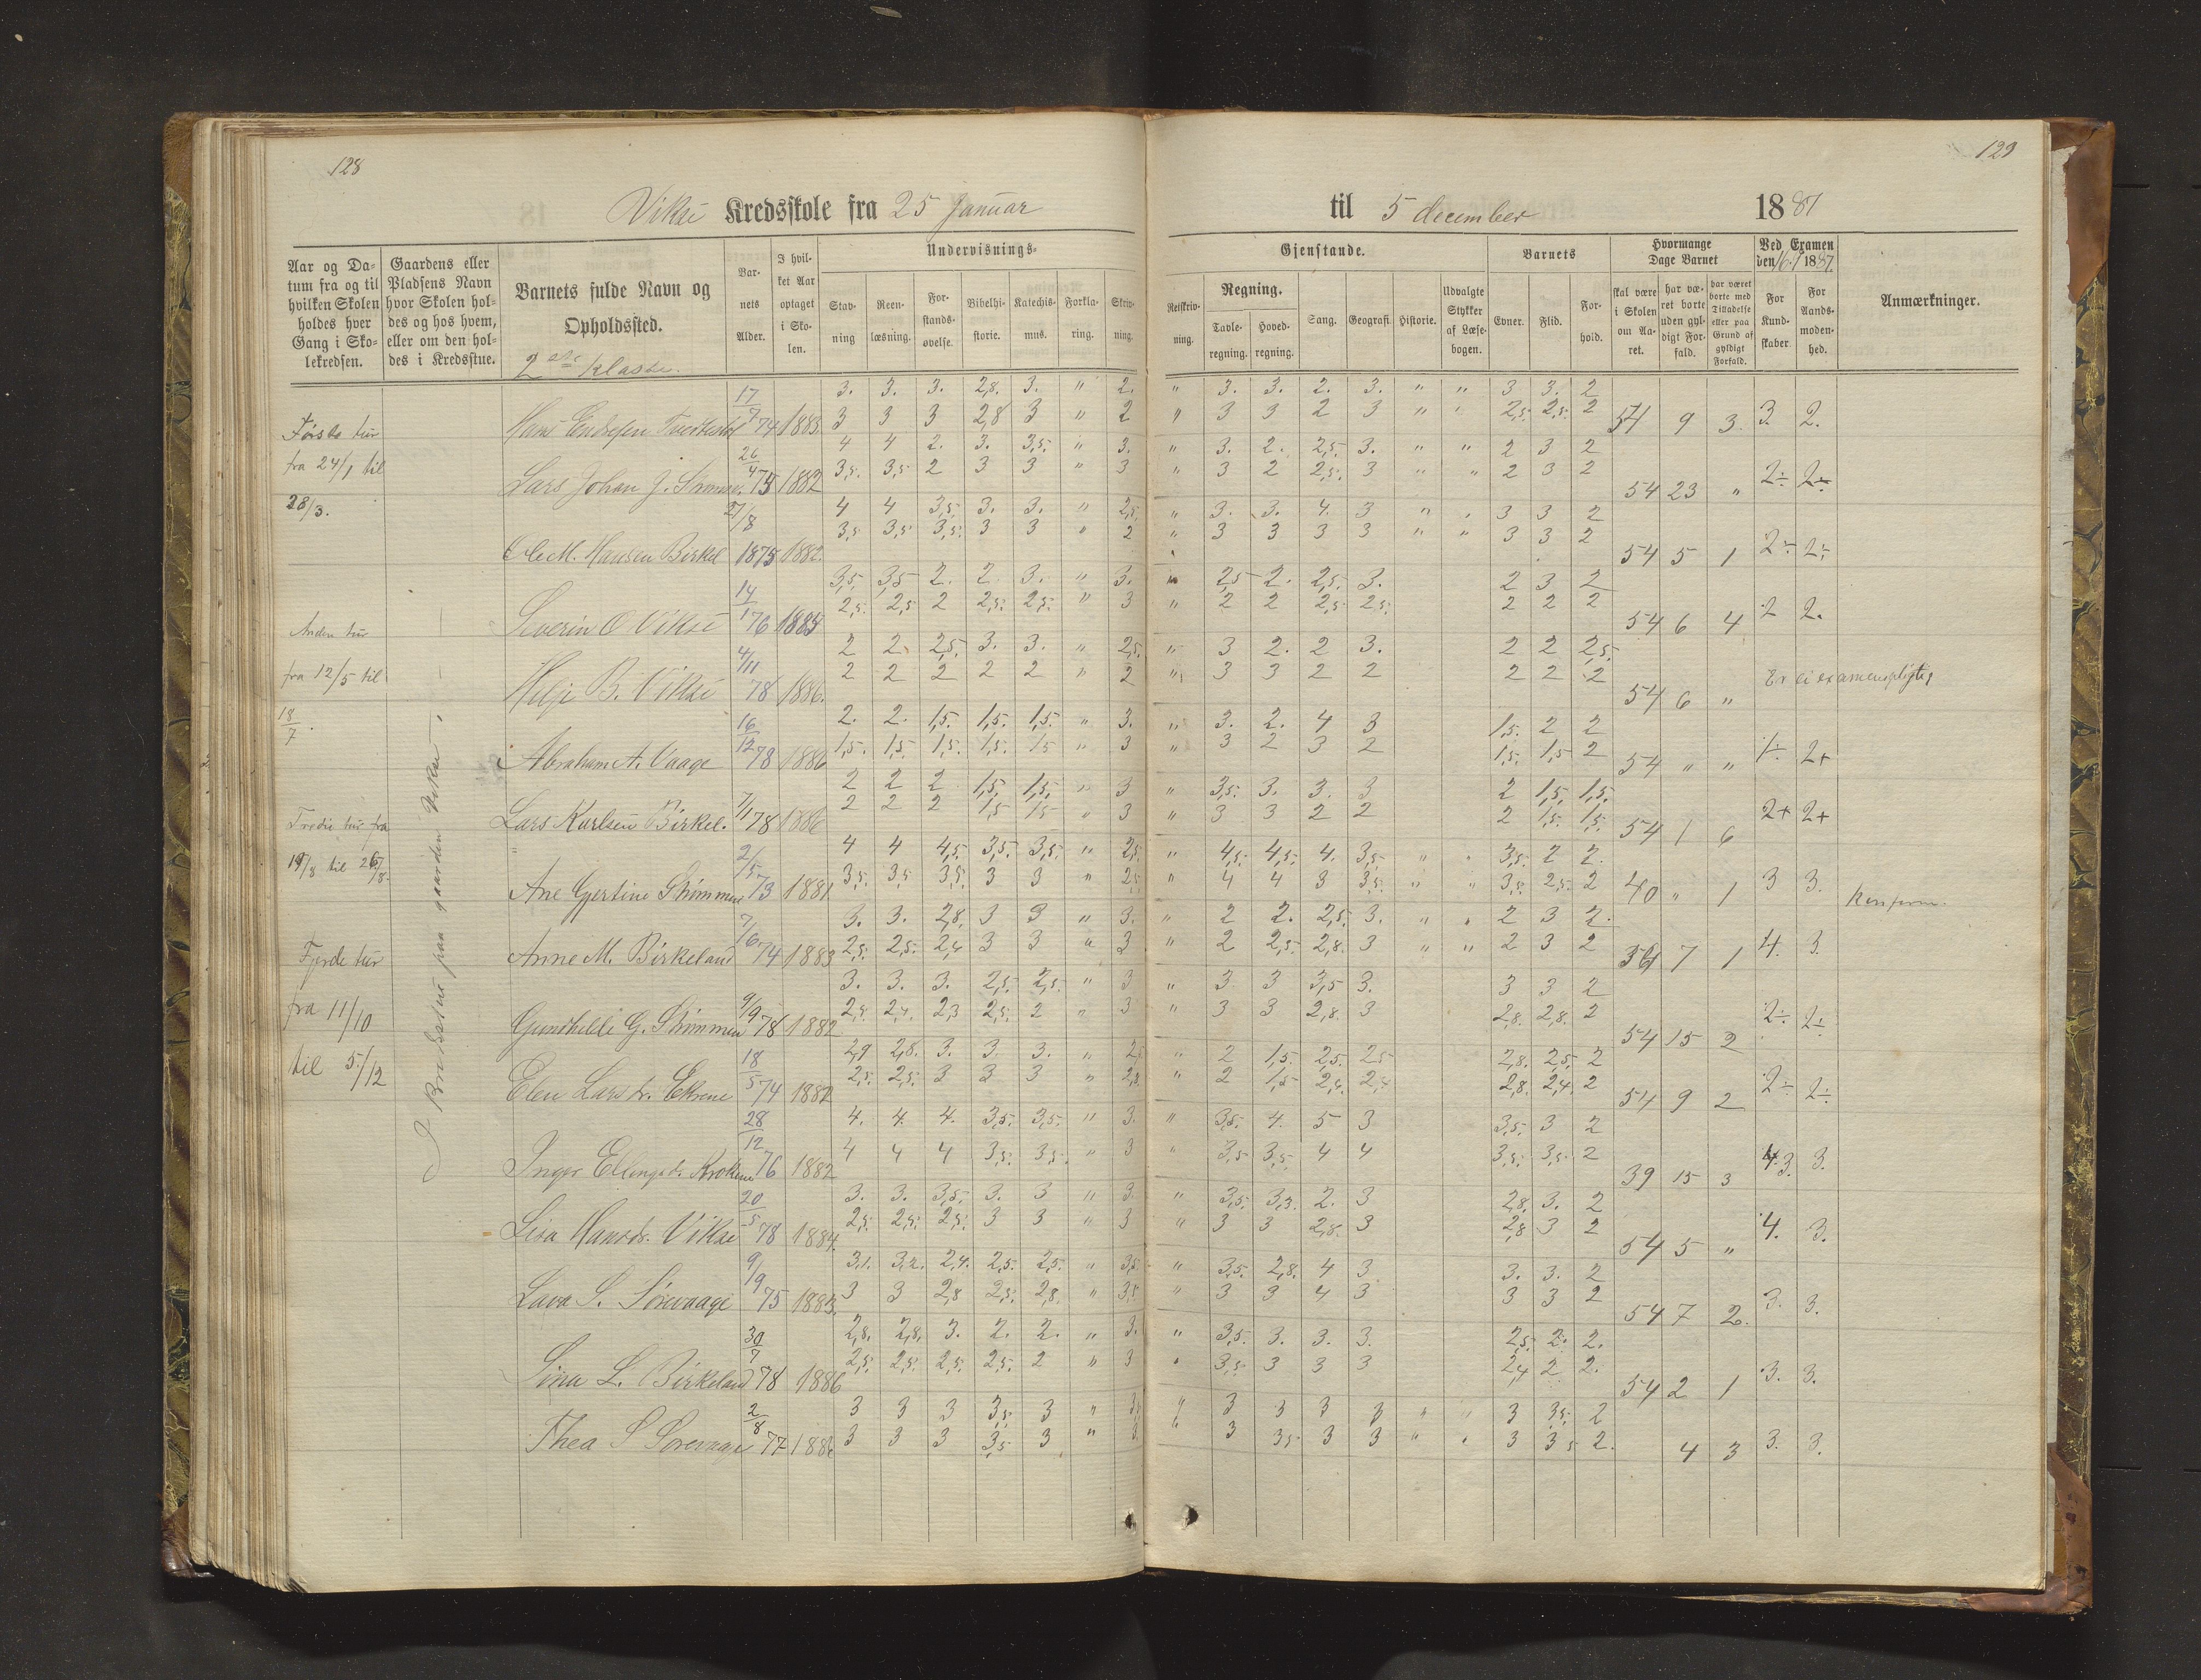 128
129
Vikse Kredsskole fra 25 Januar til 5 december 1887
Aar og Datum fra og til hvilken Skolen holdes hver Gang i Skolekredsen.
Gaardens eller Pladsens Navn hvor Skolen holdes og hos hvem, eller om den holdes i Kredsstue.
Barnets fulde Navn og Opholdssted.
2den Klasse.
Barnets Alder.
I hvilket Aar optaget i Skolen.
Undervisnings-
Stavning
Reenlæsning.
Forstandsøvelse.
Bibelhistorie.
Katechismus.
Forklaring.
Skrivning.
Gjenstande.
Retskrivning.
Regning.
Tavleregning.
Hovedregning.
Sang.
Geografi.
Historie.
Udvalgte Stykker af Læsebogen.
Barnets
Evner.
Flid.
Forhold.
Hvormange Dage Barnet
skal være i Skolen om Aaret.
har været borte uden gyldigt Forfald.
har været borte med Tilladelse eller paa Grund af gyldigt Forfald.
Ved Examen den 16/1 1887.
For Kundskaber
For Aandsmodenhed.
Anmærkninger.
Første tur
fra 24/1 til
28/3.
Anden tur
fra 12/5 til
18/7.
Tredie tur fra
til 26/8.
Fjerde tur
fra 11/10
til 5/12
paa gaarden Vikse
3. 3. 3. 2,8. 3. " 2. " 3. 3. 2. 3. " " 3 3. 2
Hans Endresen 17/7 74 1883 3 3 3 2,8 3 " 2 " 3 3 2 3 " " 2,5. 2,5. 2 54 9 3. 3. 2.
4 4 2. 3. 3,5. " 3. " 3. 2. 2,5. 3. " " 2 3 2
Lars Johan J. 26/4 75 1882 3,5. 3,5 2 3 3 " 3 " 3 2 2,5. 3 " " 2 3 2 54 23 " 2÷ 2÷
4 4 3,5. 3. 3. " 2,5. " 3. 3. 4. 3 " " 3 3 2
Ole M. Hansen Birkel 27/8 1875 1882. 3,5 3,5 3,5. 3 3 " 2 " 3 3 3 3 " " 3 3 2 54 5 1 2÷ 2÷
3,5 3,5 2. 2. 3. " 3. " 2,5 2. 2,5. 3. 2 3 2
Severin O Vikse 14/1 76 1885 2,5. 2,5 2 2,5. 2,5. " 3 " 2 2 2,5 2,5. 2 2 2 54 6 4 2 2.
2 2. 2,5. 3. 3. " 2,5. " 3 2. 2 3. 2 2 2,5.
Helje B. Vikse 4/11 78 1886. 2 2 2 2 2 " 2 " 3 3 2 2 2 2 2 54 6 " Er ei examenspligtig
2. 2. 1,5. 1,5. 1,5. " 3. " 3. 2. 4 3 1,5. 2 2
Abraham A. Vaage 16/12 78 1886 1,5. 1,5 1,5. 1,5. 15 " 3 " 3 2 3 2 1,5. 1,5 2 54 " " 1÷ 2+
2 2 2 1,5. 1,5. " 3 " 3,5. 3. 3. 3 2 1,5. 1,5.
Lars Karlsen Birkel. 7/1 78 1886 2 2 2 1,5 15 " 3 " 3 3 2 2 2 1,5. 1,5. 54 1 6 2+ 2+
4 4 4,5. 3,5. 3,5. " 2,5. " 4,5. 4,5. 4. 3,5. " " 3,5. 2 2.
Ane Gjertine 2/5 73 1881. 3,5. 3,5 3,5. 3 3 " 2,5 " 4 4 3 3,5. " " 3,5. 2,5. 2 40 " 1 3 3.
3. 3. 2,8. 3 3 " 3. " 2 2. 2,5. 3. " " 2 3 2.
Anne M. Birkeland 7/6 74 1883 2,5. 2,5. 2,4 3 3 " 3 " 2 2,5. 2,8. 3 " " 2 3 2 7 1 4. 3.
3. 3. 3. 2,5. 2,5. " 3 " 3 3 3,5 3. 3 3 2
Gunhilde G. 9/9 78 1882 2,3 2,5. 2 " 3 " 3 3 2,8. 3 2,8. 2,8. 2 54 15 2 2÷ 2÷
2,9 2,8. 3. 3. 3. " " 2 1,5. 2,5. 2,5 2,8. 2,5. 2
Elen Larsdr. Ekrene 18/5 74 1882 2,5. 2,5. 3 3 3 " " 2 1,5 2,4. 2,4 2,8. 2,4. 2 54 9 2 2÷ 2÷
4. 4. 4. 3,5. 3,5. " 3. " 3,5. 4. 5 3 3,5. 3 2
Inger Ellingsdr. 28/12 76 1882 4 4 4 3,5. 3,5. " 3 " 3,5 3,5. 4 4 3,5. 3,5. 2 39 15 3 3. 3.
3. 3. 3,5. 3. 3 " 3. " 3,5. 3,3. 2. 3 2,8. 3. 2
Lisa Hansdr. Vikse 20/5 78 1884. 2,5. 2,5. 2,5. 3 3 " 3 " 3 3 2,8. 3 2,8 3 2 54 5 " 4. 3.
3,1. 3,2. 2,4. 2,5. 2,5. " 3,5. " 3,5. 2,8. 4 3 3. 3. 2
Lava S. Sørevaage 9/9 75 1883. 3 3 2,8 2,5. 2,8. " 3,5 " 3 3 4 3 3 3 2 54 7 2. 3. 3.
2,8. 2,8. 3. 2. 2. " 3. " 3,5. 3. 3. 3. 2,5. 2. 2.
Sina L. Birkeland 30/7 78 1886 2,5. 2,5. 2,5. 2,5. 2 " 3 " 3,5 3 3 3 2,4 2 2. 54 2 1 3. 3.
3 3 3 3,5. 3 " " 3 3 3 3 " " 3 3,5. 2
Thea S Sørevaage 2/8 77 3 3 3 3,5 3 " 3. " 3 3,5 3 3 " " 3 3 5 2. 4 3 3. 3.